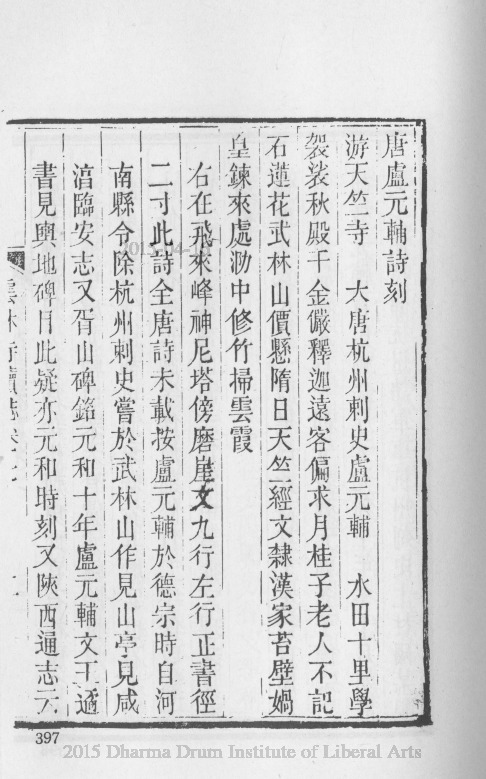 唐盧元輔詩刻
游天竺寺　大唐杭州刺史盧元輔　水田十里學
袈裟秋殿千金儼釋迦遠客偏求月桂子老人不記
石蓮花武林山價懸隋日天竺經文隸漢家苔壁媧
皇鍊來處泐中修竹掃雲霞
右在飛來峰神尼塔傍磨崖文九行左行正書徑
二寸此詩全唐詩未載按盧元輔於德宗時自河
南縣令除杭州刺史嘗於武林山作見山亭見咸
淳臨安志又胥山碑銘元和十年盧元輔文王遹
書見輿地碑目此疑亦元和時刻又陝西通志云
397
2015 Dharma Drum Institute of Liberal Arts